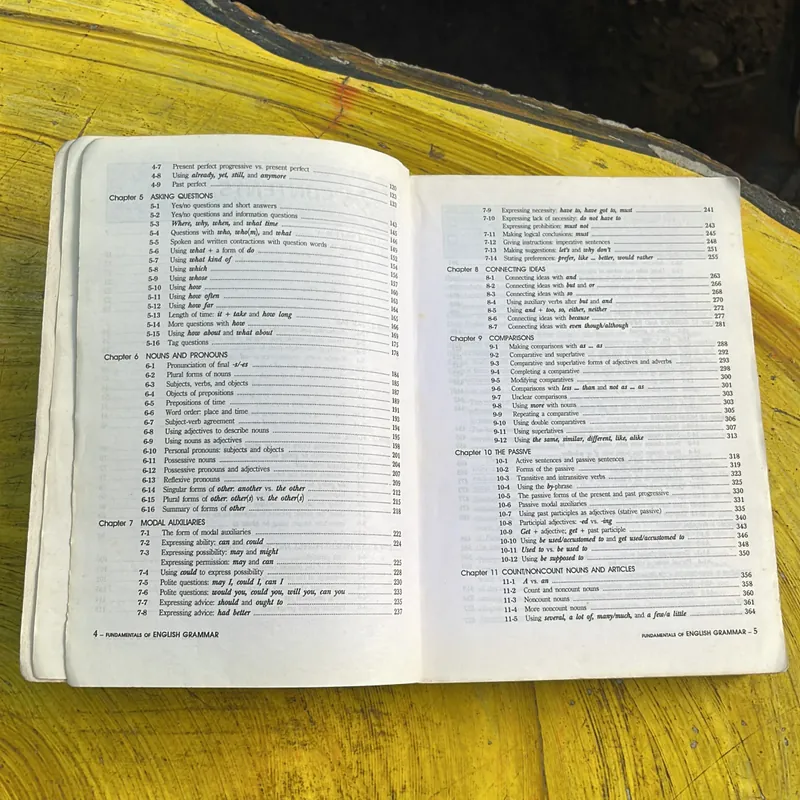 4-7 Present perfect progressive vs. present perfect
4-8 Using already, yet, still, and anymore 120
4-9 Past perfect
Chapter 5 ASKING QUESTIONS
5-1 Yes/no questions and short answers
5-2 Yes/no questions and information questions
5-3 Where, why, when, and what time
5-4 Questions with who, who(m), and what
5-5 Spoken and written contractions with question words
5-6 Using what + a form of do
5-7 Using what kind of
5-8 Using which
5-9 Using whose
5-10 Using how
5-11 Using how often
5-12 Using how far
5-13 Length of time: it + take and how long
5-14 More questions with how
5-15 Using how about and what about 171
5-16 Tag questions 178
Chapter 6 NOUNS AND PRONOUNS
6-1 Pronunciation of final -s/-es 184
6-2 Plural forms of nouns 185
6-3 Subjects, verbs, and objects 187
6-4 Objects of prepositions 189
6-5 Prepositions of time 191
6-6 Word order: place and time
6-7 Subject-verb agreement 194
6-8 Using adjectives to describe nouns 195
6-9 Using nouns as adjectives 198
6-10 Personal pronouns: subjects and objects 201
6-11 Possessive nouns 204
6-12 Possessive pronouns and adjectives 207
6-13 Reflexive pronouns 209
6-14 Singular forms of other: another vs. the other 212
6-15 Plural forms of other: other(s) vs. the other(s) 215
6-16 Summary of forms of other 218
Chapter 7 MODAL AUXILIARIES
7-1 The form of modal auxiliaries 222
7-2 Expressing ability: can and could 224
7-3 Expressing possibility: may and might
Expressing permission: may and can 225
7-4 Using could to express possibility 228
7-5 Polite questions: may I, could I, can I 230
7-6 Polite questions: would you, could you, will you, can you 233
7-7 Expressing advice: should and ought to 235
7-8 Expressing advice: had better 237
4 – FUNDAMENTALS OF ENGLISH GRAMMAR
7-9 Expressing necessity: have to, have got to, must 241
7-10 Expressing lack of necessity: do not have to
Expressing prohibition: must not 243
7-11 Making logical conclusions: must 245
7-12 Giving instructions: imperative sentences 248
7-13 Making suggestions: let's and why don't 251
7-14 Stating preferences: prefer, like ... better, would rather 255
Chapter 8 CONNECTING IDEAS
8-1 Connecting ideas with and 263
8-2 Connecting ideas with but and or 266
8-3 Connecting ideas with so 268
8-4 Using auxiliary verbs after but and and 270
8-5 Using and + too, so, either, neither 272
8-6 Connecting ideas with because 277
8-7 Connecting ideas with even though/although 281
Chapter 9 COMPARISONS
9-1 Making comparisons with as ... as 288
9-2 Comparative and superlative 292
9-3 Comparative and superlative forms of adjectives and adverbs 293
9-4 Completing a comparative 298
9-5 Modifying comparatives 300
9-6 Comparisons with less ... than and not as ... as 301
9-7 Unclear comparisons 303
9-8 Using more with nouns 303
9-9 Repeating a comparative 305
9-10 Using double comparatives 306
9-11 Using superlatives 307
9-12 Using the same, similar, different, like, alike 313
Chapter 10 THE PASSIVE
10-1 Active sentences and passive sentences 318
10-2 Forms of the passive 319
10-3 Transitive and intransitive verbs 323
10-4 Using the by-phrase 325
10-5 The passive forms of the present and past progressive 330
10-6 Passive modal auxiliaries 331
10-7 Using past participles as adjectives (stative passive) 335
10-8 Participial adjectives: -ed vs. -ing 340
10-9 Get + adjective; get + past participle 343
10-10 Using be used/accustomed to and get used/accustomed to 346
10-11 Used to vs. be used to 348
10-12 Using be supposed to 350
Chapter 11 COUNT/NONCOUNT NOUNS AND ARTICLES
11-1 A vs. an 356
11-2 Count and noncount nouns 358
11-3 Noncount nouns 360
11-4 More noncount nouns 361
11-5 Using several, a lot of, many/much, and a few/a little 364
FUNDAMENTALS OF ENGLISH GRAMMAR – 5